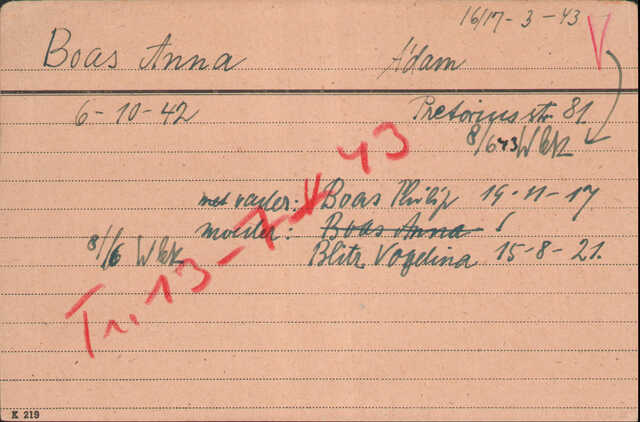 16/17-3-43 V
Boas Anna A'dam
6-10-42 Pretoriusstr. 81
8/6 43 Wbk
met vader: Boas Philip 19-11-17
moeder: Boas Anna !
8/6 Wbk Blitz Vogelina 15-8-21.
Tr. 13-7-43
K 219